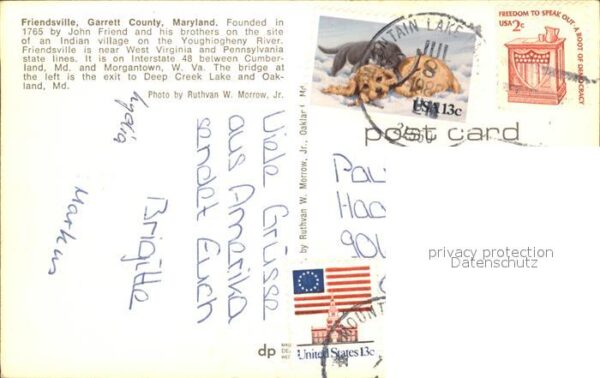 Friendsville, Garrett County, Maryland. Founded in
1765 by John Friend and his brothers on the site
of an Indian village on the Youghiogheny River.
Friendsville is near West Virginia and Pennsylvania
state lines. It is on Interstate 48 between Cumber-
land, Md. and Morgantown, W. Va. The bridge at
the left is the exit to Deep Creek Lake and Oak-
land, Md.
Photo by Ruthvan W. Morrow, Jr.
Viele Grüsse
aus Amerika
sendet Euch
Brigitte
Markus
Lydia
by Ruthvan W. Morrow, Jr., Oakland
USA 13c
FREEDOM TO SPEAK OUT A ROOT OF DEMOCRACY
USA 2c
TAIN LAKE
JUL
8
post card
privacy protection
Datenschutz
MOUNT
United States 13c
dp